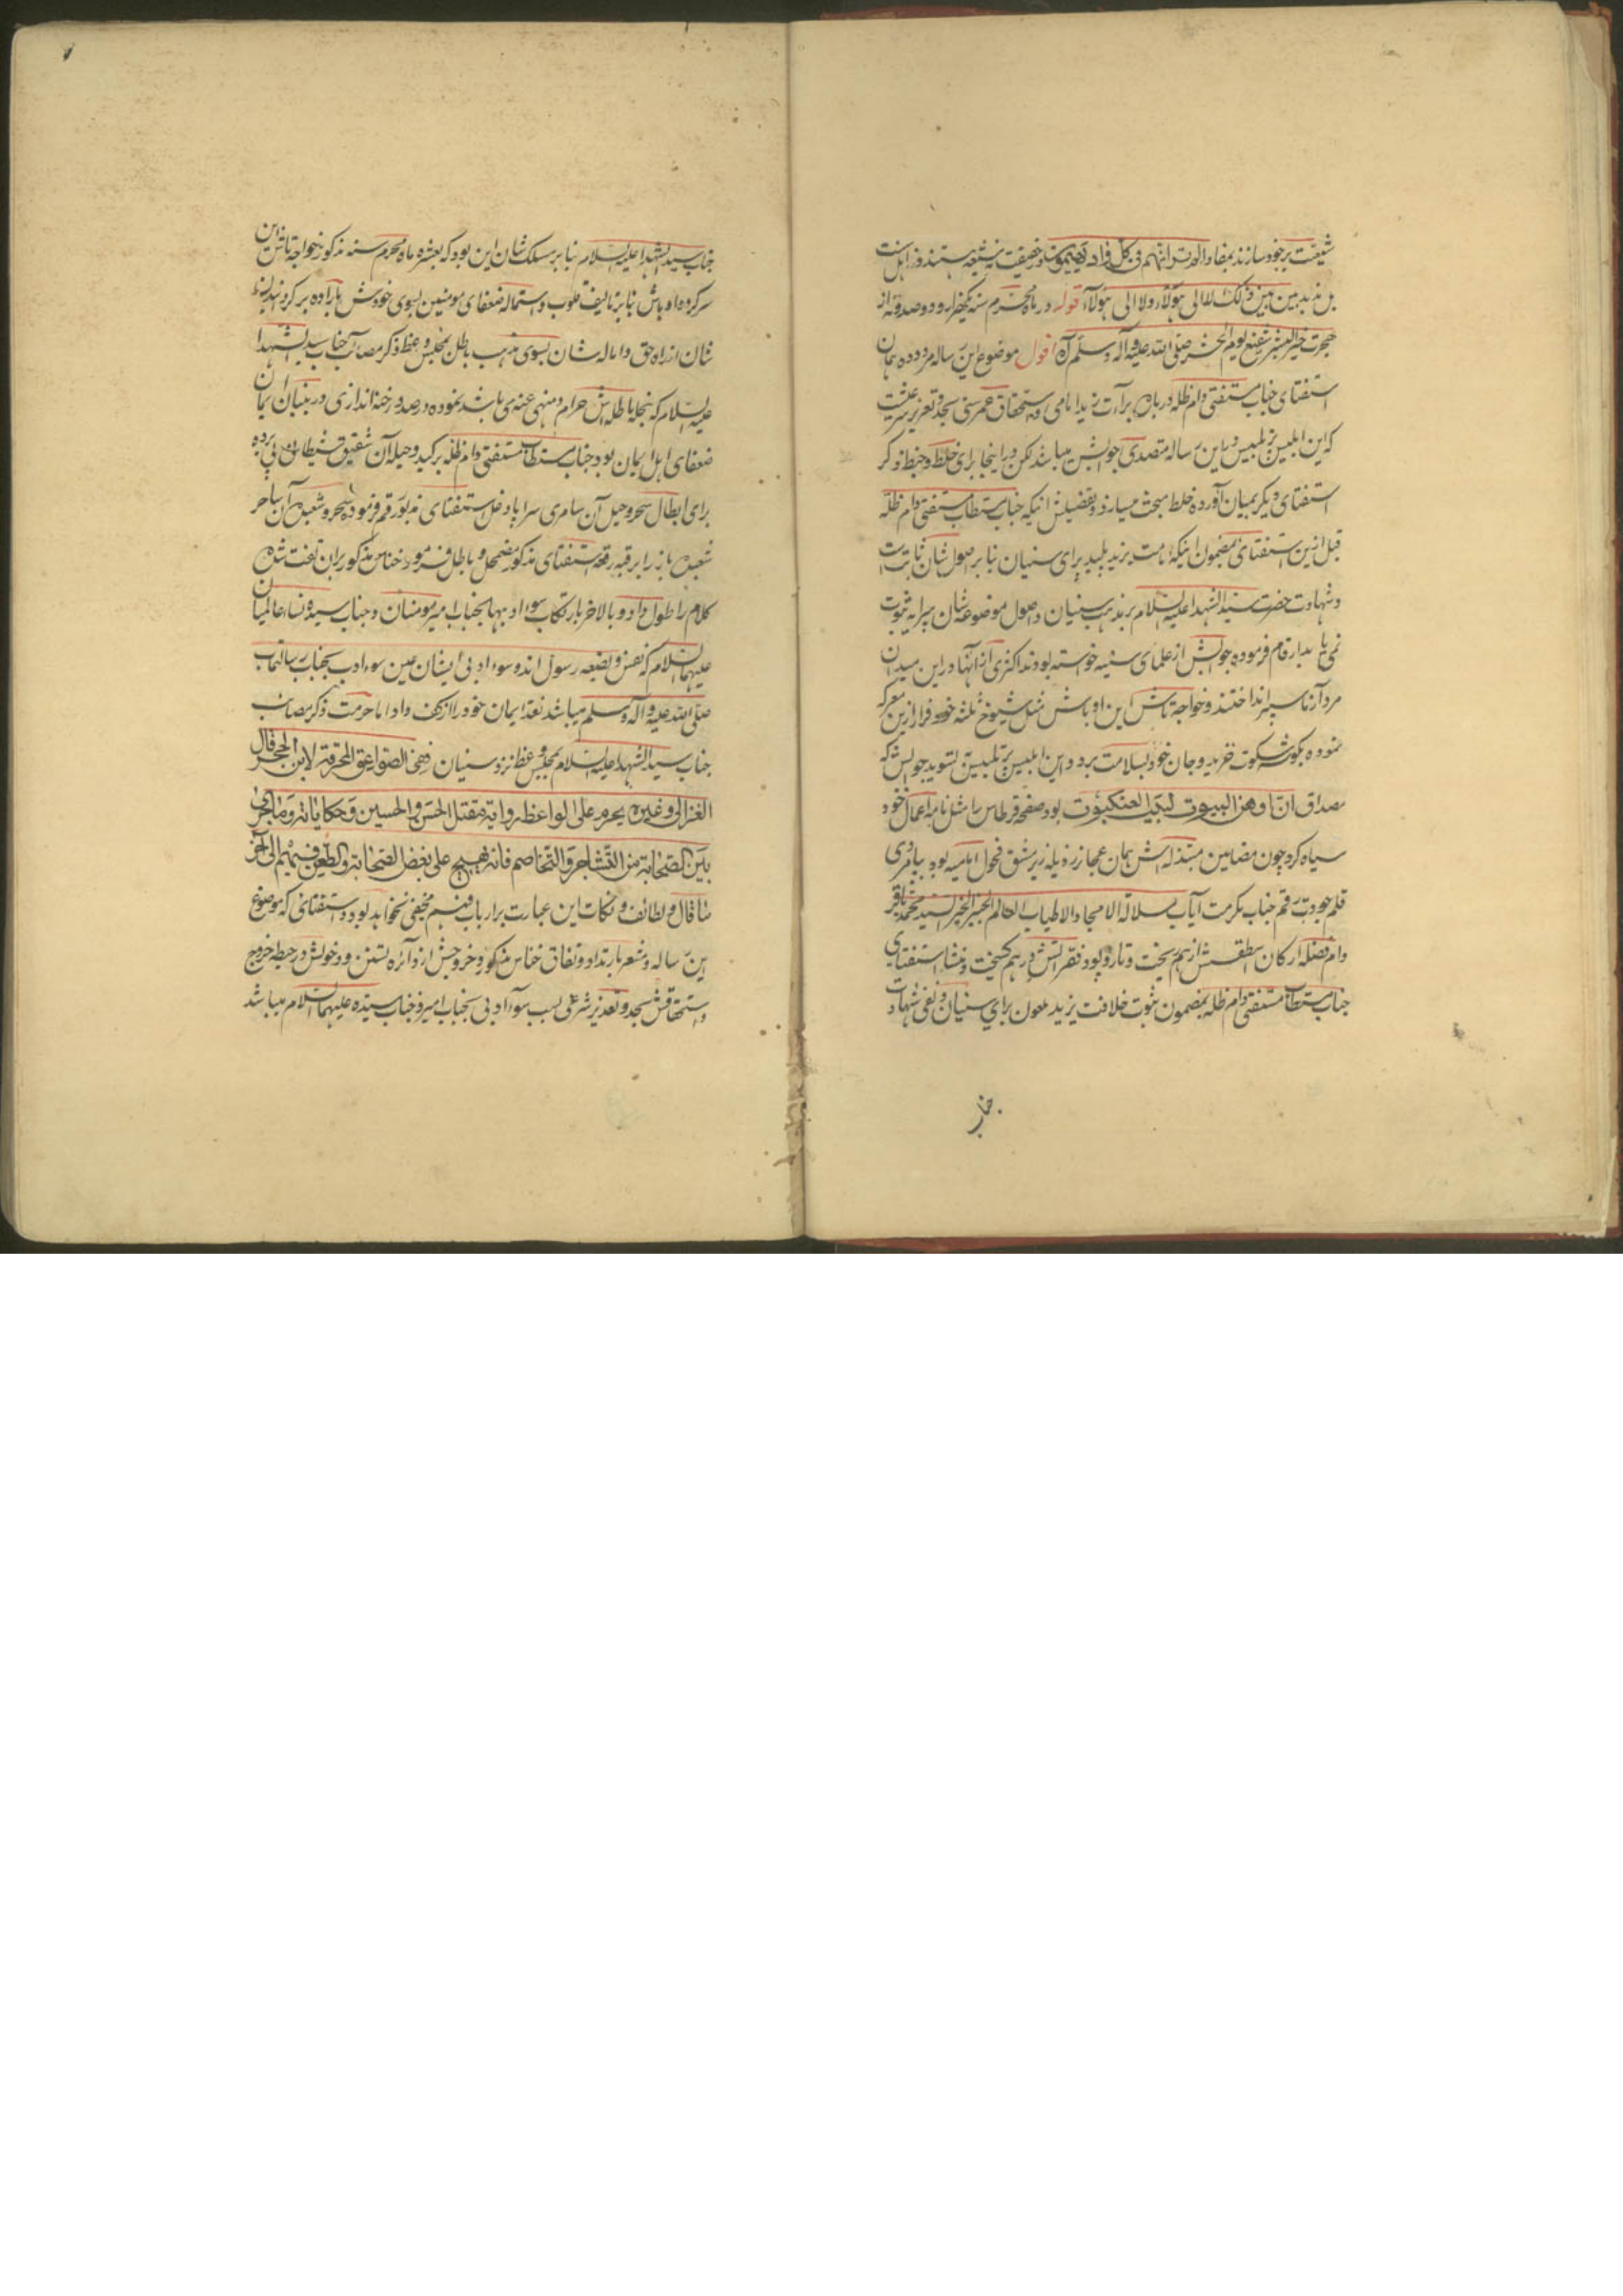 شیعیت بر خود سازند بمفاد الم تر انهم فی کل واد یهیمون و حقیقت نه شیعه هستند و نه اهل سنت
بل مذبذبین بین ذلک لا الی هؤلاء ولا الی هؤلاء قوله در ماه محرم سنه یکهزار و دو صد و نه از
هجرت خیر البشر شفیع یوم المحشر صلی الله علیه وآله وسلم آه اقول موضوع این رساله مردوده همان
استفتای جناب مستفتی دام ظله درباره برآءت یزید امامی و استحقاق عمر سنی بحد و تعزیر شرعیست
که این ابلیس پر تلبیس در این رساله متصدی جوابش میباشد لکن در اینجا برای خلط و خبط ذکر
استفتای دیگر بمیان آورده خلط مبحث میسازد و تفصیلش اینکه جناب مستطاب مستفتی دام ظله
قبل ازین استفتای بمضمون اینکه امامت یزید پلید برای سنیان نابر اصول شان ثابت است
و شهادت حضرت سید الشهدا علیه السلام بر مذهب سنیان و اصول موضوعه شان بپرایه ثبوت
نمی یابد ارقام فرموده جوابش از علمای سنیه خواسته بودند اکثری از آنها در این میدان
مرد آزما سپر انداختند و خواجه تاش این اوباش مثل شیوخ ثلثه خود فرار ازین معرکه
نموده بگوشه سکوت خزید و جان خود بسلامت برد و این ابلیس پر تلبیس بتسوید جوابش که
مصداق ان اوهن البیوت لبیت العنکبوت بود صفحه قرطاس را مثل نامه اعمال خود
سیاه کرد چون مضامین مبتذله اش همان عجائز رذیله زیر مشق فحول امامیه بود بپامردی
قلم جودت رقم جناب مکرمت آیاب سلالة الامجاد والاطیاب العالم الحبر الخبیر السید محمد باقر
دام فضله ارکان اسطقسش از هم ریخت و تار و پود فقراتش درهم گسیخت و منشا استفتای
جناب مستطاب مستفتی دام ظله بمضمون ثبوت خلافت یزید ملعون برای سنیان و نفی شهادت
جناب
جناب سید الشهدا علیه السلام نابر مسلک شان این بود که بعشره ماه محرم سنه مذکور خواجه تاش این
سرگروه اوباش نابر تالیف قلوب و استماله ضعفای مومنین بسوی خودش باراده برگردانیدن
شان از راه حق و اماله شان بسوی مذهب باطل بمجلس وعظ و ذکر مصائب جناب سید الشهدا
علیه السلام که بنحله باطله اش حرام و منهی عنه می باشد نموده در صدد رخنه اندازی در بنیان ایمان
ضعفای اهل ایمان بود جناب مستطاب مستفتی دام ظله بر کید و حیله آن شقیق شیطان پی برده
برای ابطال سحر و حیل آن سامری سراپا دغل استفتای مزبور رقم فرموده سحر و شعبده آن ساحر
شعبده باز را برقیه رقعه استفتای مذکور مضمحل و باطل فرمود خناس مذکور بران تفت شده
کلام را طول داد و بالاخر بارتکاب سوء ادبها بجناب امیر مومنان و جناب سیده نساء عالمیان
علیهما السلام که نفس و بضعه رسول اند و سوء ادبی ایشان عین سوء ادب بجناب رسالتماب
صلی الله علیه وآله وسلم میباشد نقد ایمان خود را از کف داد اما حرمت ذکر مصائب
جناب سید الشهدا علیه السلام بمجلس وعظ نزد سنیان ففی الصواعق المحرقة لابن الحجر قال
الغزالی وغیره یحرم علی الواعظ روایة مقتل الحسن والحسین وحکایاته وما جری
بین الصحابة من التشاجر والتخاصم فانه یهیج علی بغض الصحابة والطعن فیهم الی آخر
ما قال و لطائف و نکات این عبارت بر ارباب فهم مخفی نخواهد بود و استفتای که موضوع
این رساله و مشعر بارتداد و نفاق خناس مذکور و خروجش از دائره تسنن و دخولش در حیطه خروج
و استحقاقش بحد و تعزیر شرعی بسبب سوء ادبی بجناب امیر و جناب سیده علیهما السلام میباشد